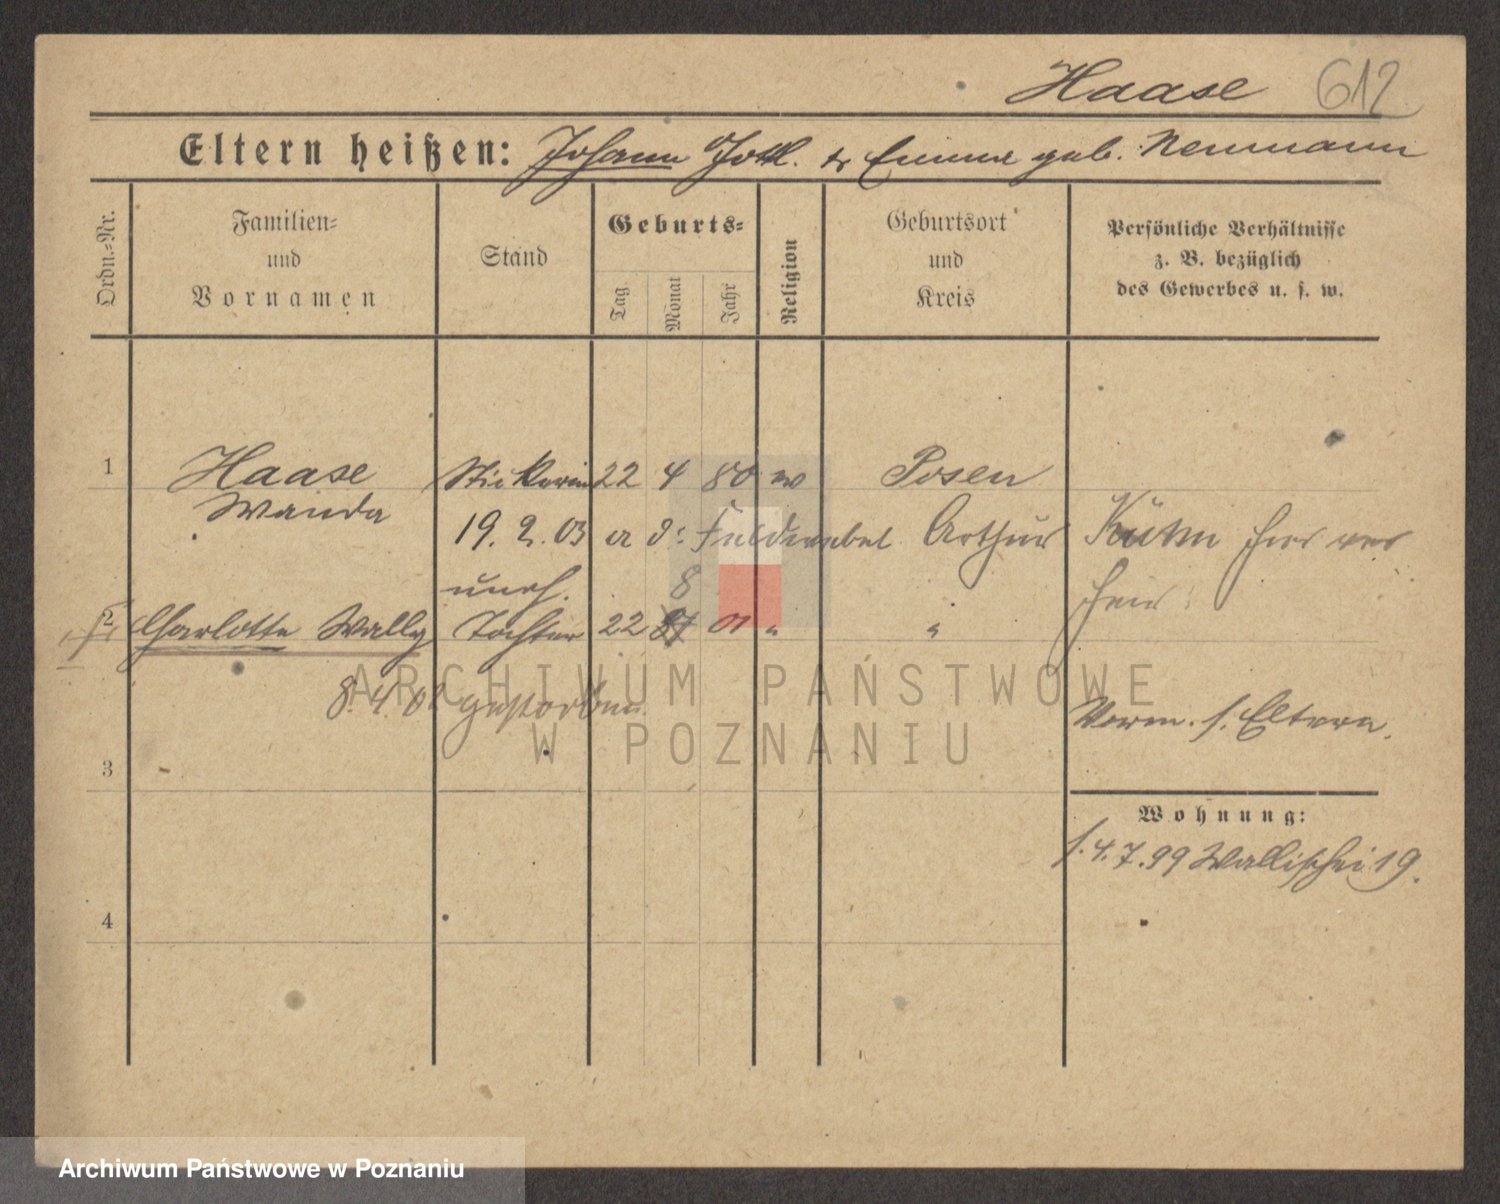 Haase 612
Eltern heißen: Johann Gottl. & Emma geb. Neumann
Ordn.-Nr.
Familien-
und
Vornamen
Stand
Geburts-
Tag
Monat
Jahr
Religion
Geburtsort
und
Kreis
Persönliche Verhältnisse
z. B. bezüglich
des Gewerbes u. s. w.
1 Haase Stickerin 22 4 80 ev Posen
Wanda
19. 2. 03 a d. Feldwebel Arthur Kühn hier ver
uneh. 8
2 Charlotte Wally Tochter 22 01 " "
8. 4. 02 gestorben
Vorm. s. Eltern.
3
Wohnung:
s. 4. 7. 99 Wallischei 19.
4
ARCHIWUM PAŃSTWOWE
W POZNANIU
Archiwum Państwowe w Poznaniu